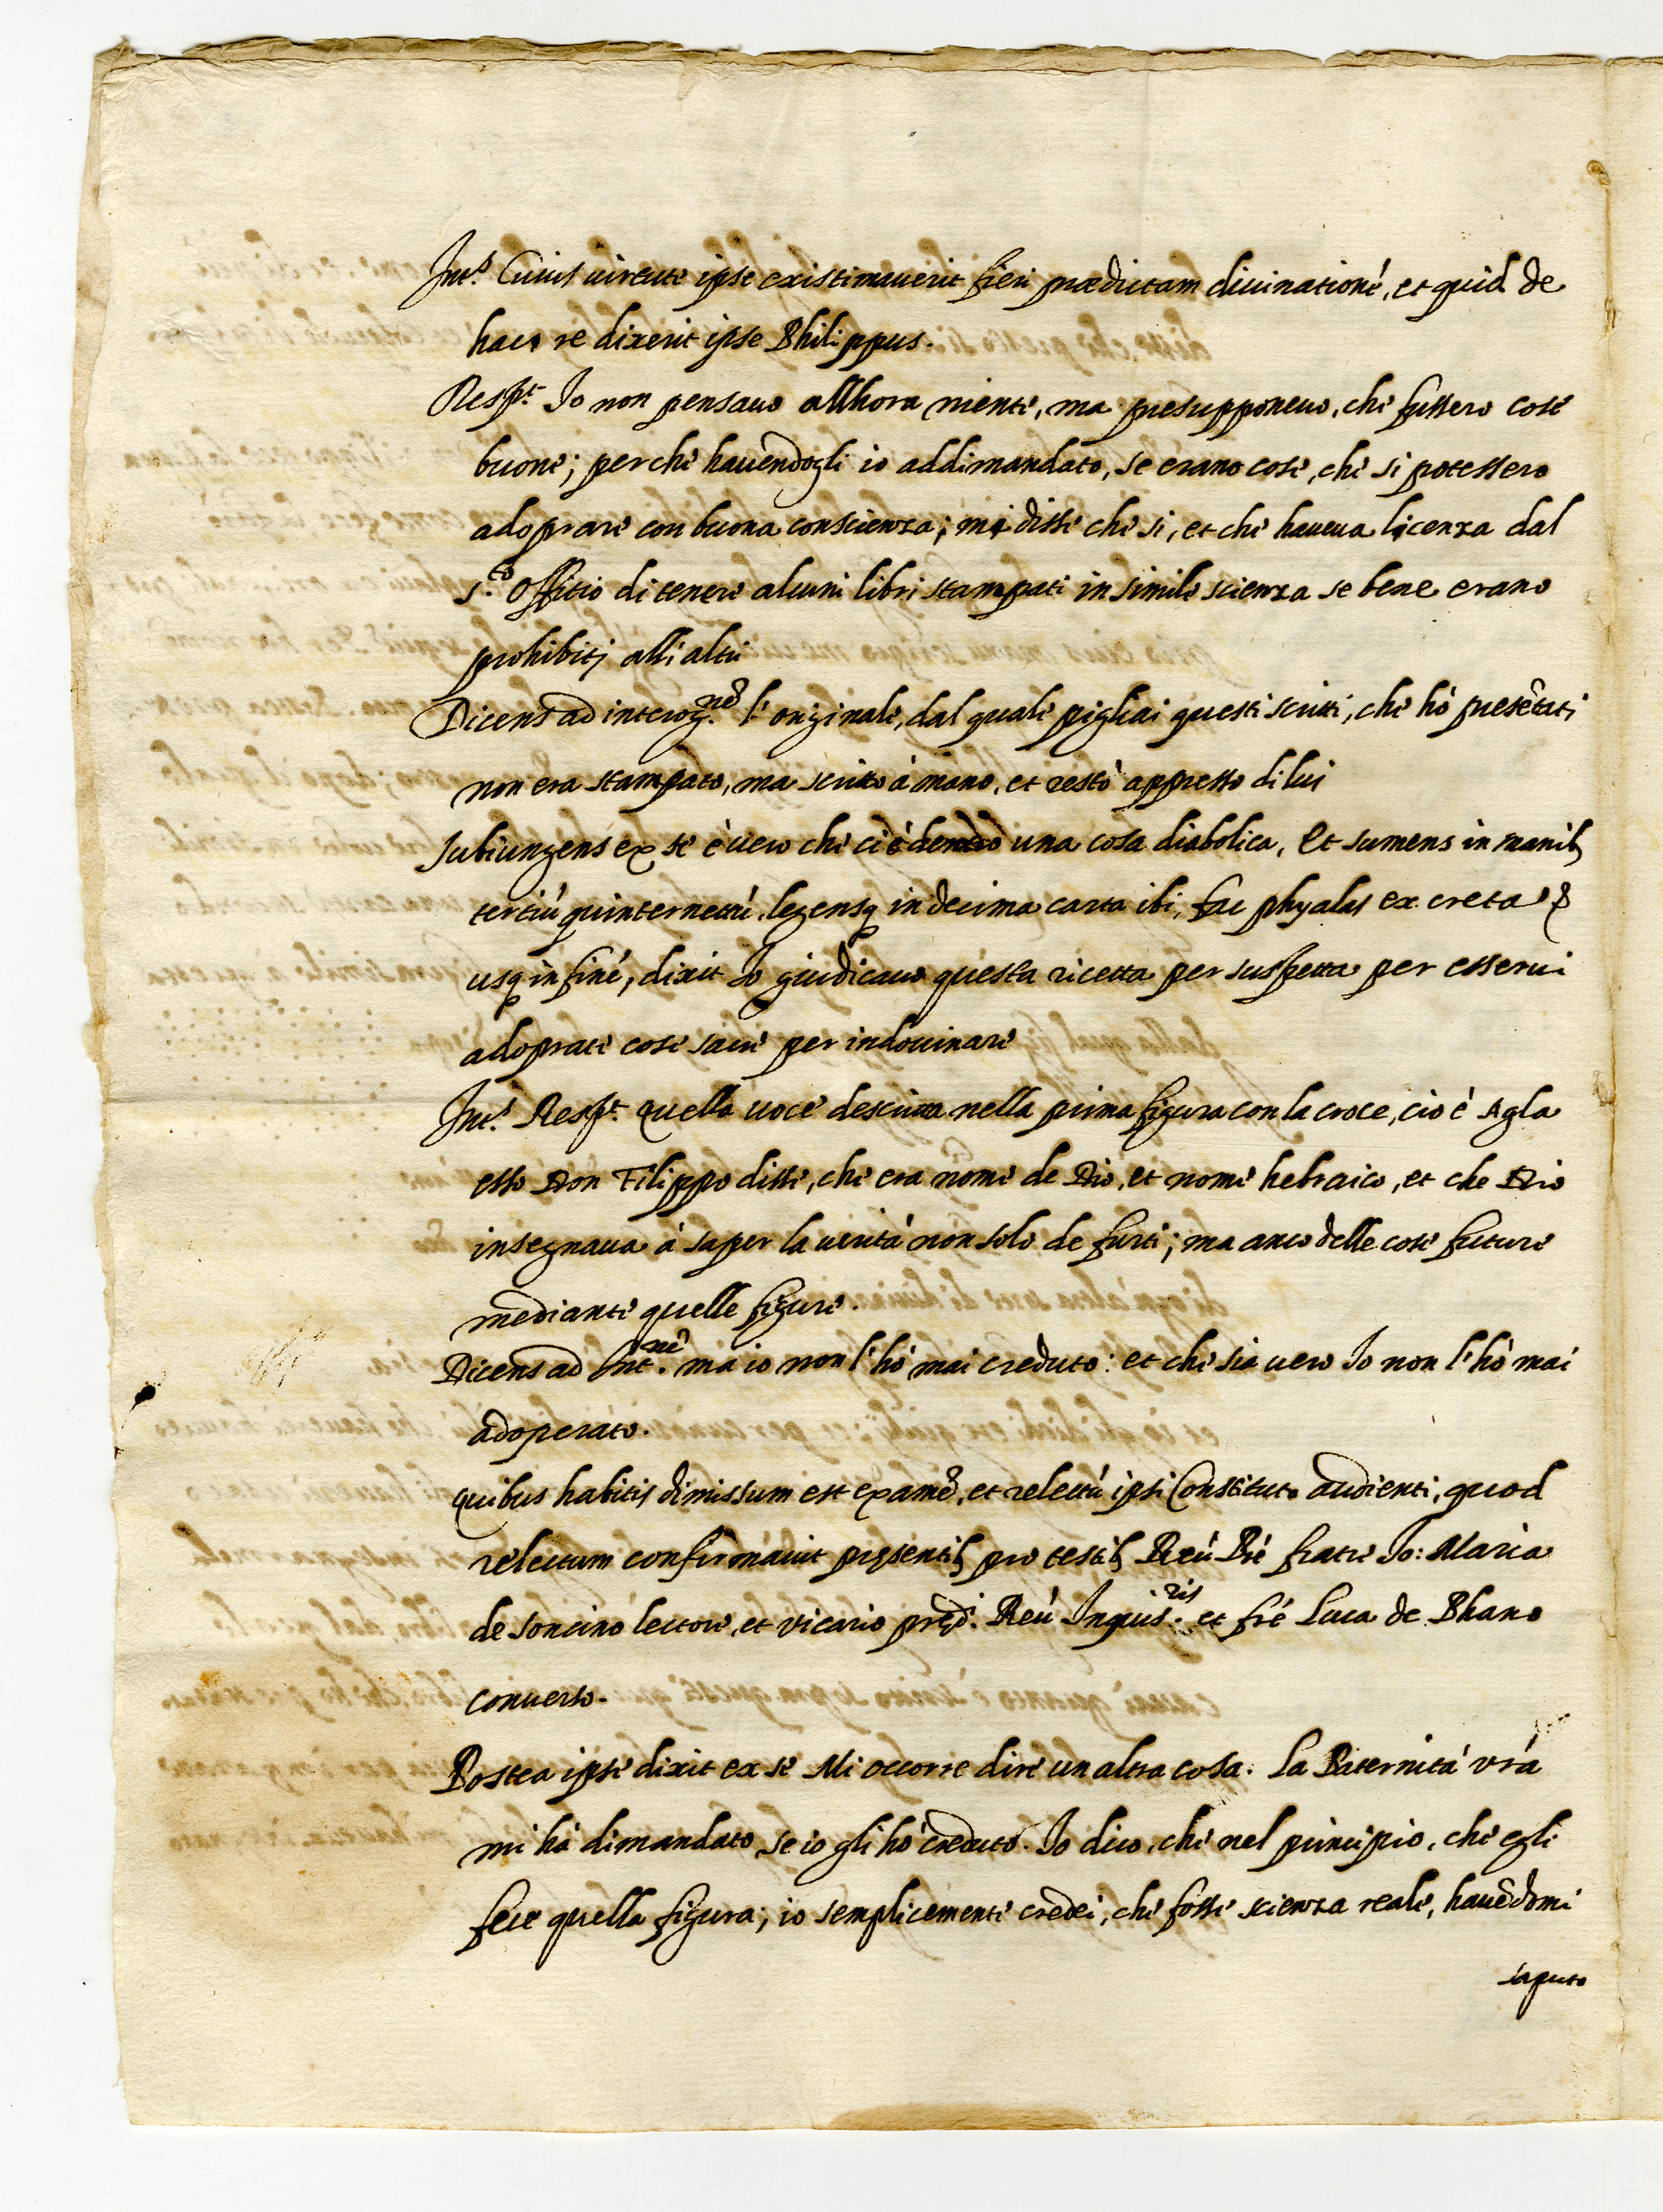 Int.s Cuius uirtute ipse existimauerit fieri prædictam diuinationē, et quid de
hac re dixerit ipse Philippus.
Resp.t Io non pensauo allhora niente, ma presupponeuo, che fussero cose
buone; perche hauendogli io addimandato, se erano cose, che si potessero
adoprare con buona conscienza; mi disse che si, et che haueua licenza dal
S.to Offitio di tenere alcuni libri stampati in simile scienza se bene erano
prohibitj alli altri
Dicens ad interog.nē l'originale, dal quale pigliai questi scritti, che hò presētati
non era stampato, ma scritto à mano, et restò appresso di lui
Subiungens ex se è uero che ci è dentro una cosa diabolica, Et sumens in manib
tertiū quinternettū, legensq in decima carta ibi, fac phyalas ex creta &
usq in finē, dixit Io giudicauo questa ricetta per suspetta per esserui
adoprate cose sacre per indouinare
Int.s Resp.t Quella uoce descritta nella prima figura con la croce, cio è Agla
esso Don Filippo disse, che era nome de Dio, et nome hebraico, et che Dio
insegnaua à saper la uerità non solo de furti; ma anco delle cose future
mediante quelle figure.
Dicens ad Int.nē ma io non l'hò mai creduto: et che sia uero Io non l'hò mai
adoperato.
Quibus habitis dimissum est examē, et relectū ipsi Constituto audienti, quod
relectum confirmauit pręsentib pro testib Reū Prē fratre Io: Maria
de Soncino lectore, et vicario pręd. Reū Inquis.ris et frē Luca de Phano
conuerso.
Postea ipse dixit ex se Mi occorre dire un altra cosa. La Paternità vrā
mi hà dimandato, se io gli hò creduto. Io dico, che nel principio, che egli
fece quella figura; io semplicemente credei, che fosse scienza reale, hauēdomi
saputo